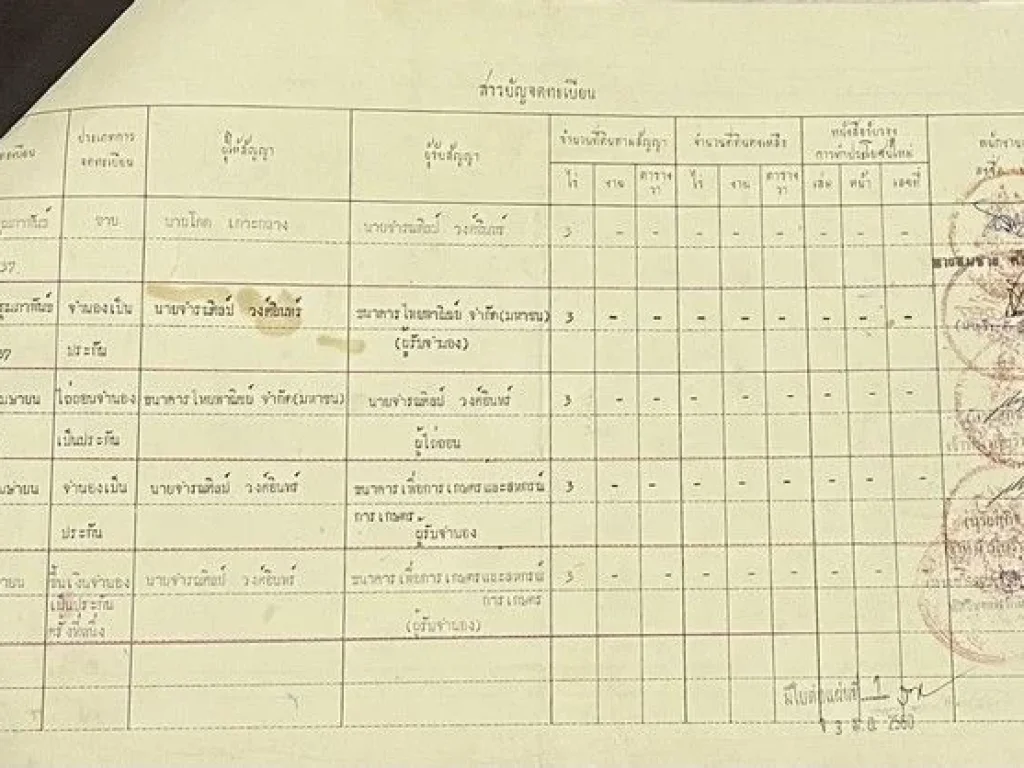 สารบัญจดทะเบียน
ทะเบียน
ประเภทการ
จดทะเบียน
ผู้ให้สัญญา
ผู้รับสัญญา
จำนวนที่ดินตามสัญญา
จำนวนที่ดินคงเหลือ
หนังสือรับรอง
การทำประโยชน์ใหม่
ไร่ งาน ตาราง
วา
ไร่ งาน ตาราง
วา
เล่ม หน้า เลขที่
ขาย นายโตด เกาะกลาง นายจำรณศิลป์ วงศ์อินทร์ 3 - - - - - - - -
37
จำนองเป็น นายจำรณศิลป์ วงศ์อินทร์ ธนาคารไทยพาณิชย์ จำกัด(มหาชน) 3 - - - - - - - -
37 ประกัน (ผู้รับจำนอง)
ไถ่ถอนจำนอง ธนาคารไทยพาณิชย์ จำกัด(มหาชน) นายจำรณศิลป์ วงศ์อินทร์ 3 - - - - - - - -
เป็นประกัน ผู้ไถ่ถอน
จำนองเป็น นายจำรณศิลป์ วงศ์อินทร์ ธนาคารเพื่อการเกษตรและสหกรณ์ 3 - - - - - - - -
ประกัน การเกษตร
ผู้รับจำนอง
ขึ้นเงินจำนอง นายจำรณศิลป์ วงศ์อินทร์ ธนาคารเพื่อการเกษตรและสหกรณ์ 3 - - - - - - - -
เป็นประกัน การเกษตร
ครั้งที่หนึ่ง (ผู้รับจำนอง)
มีใบต่อแผ่นที่ 1
3 มี.ค. 2560